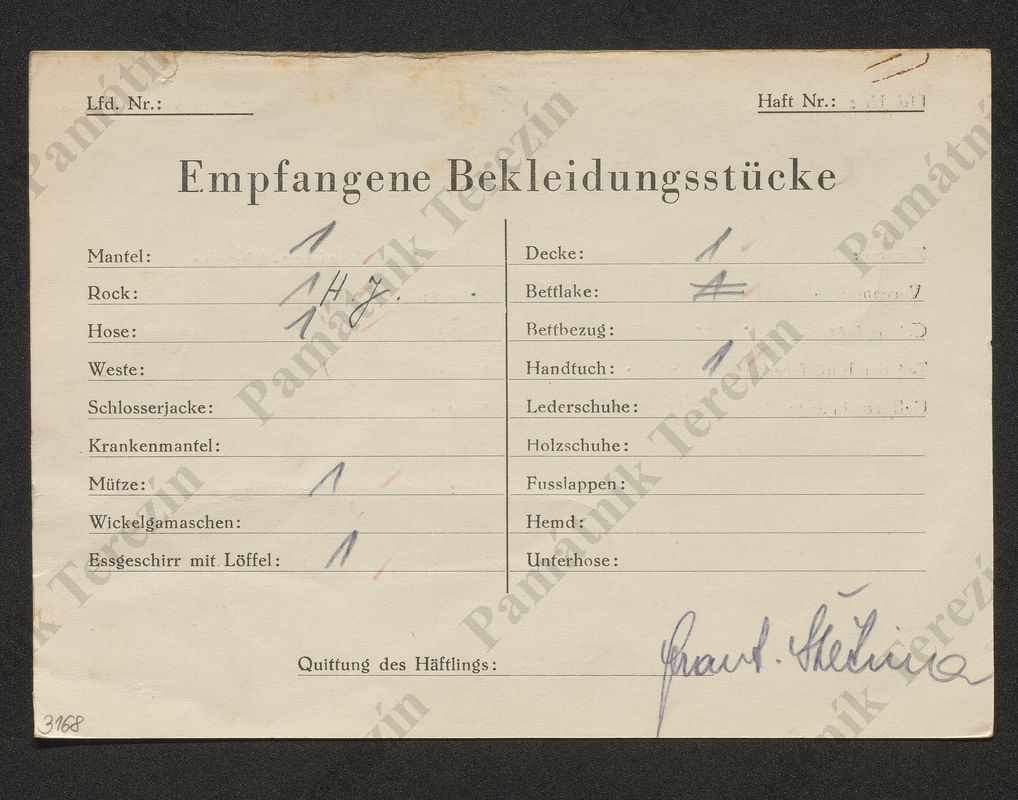 Lfd. Nr.:
Haft Nr.:
Empfangene Bekleidungsstücke
Mantel: 1
Rock: 1 H. J.
Hose: 1
Weste:
Schlosserjacke:
Krankenmantel:
Mütze: 1
Wickelgamaschen:
Essgeschirr mit Löffel: 1
Decke: 1
Bettlake: 1
Bettbezug:
Handtuch: 1
Lederschuhe:
Holzschuhe:
Fusslappen:
Hemd:
Unterhose:
Quittung des Häftlings: Štětina
3168
Památník Terezín
Památník Terezín
Památník Terezín